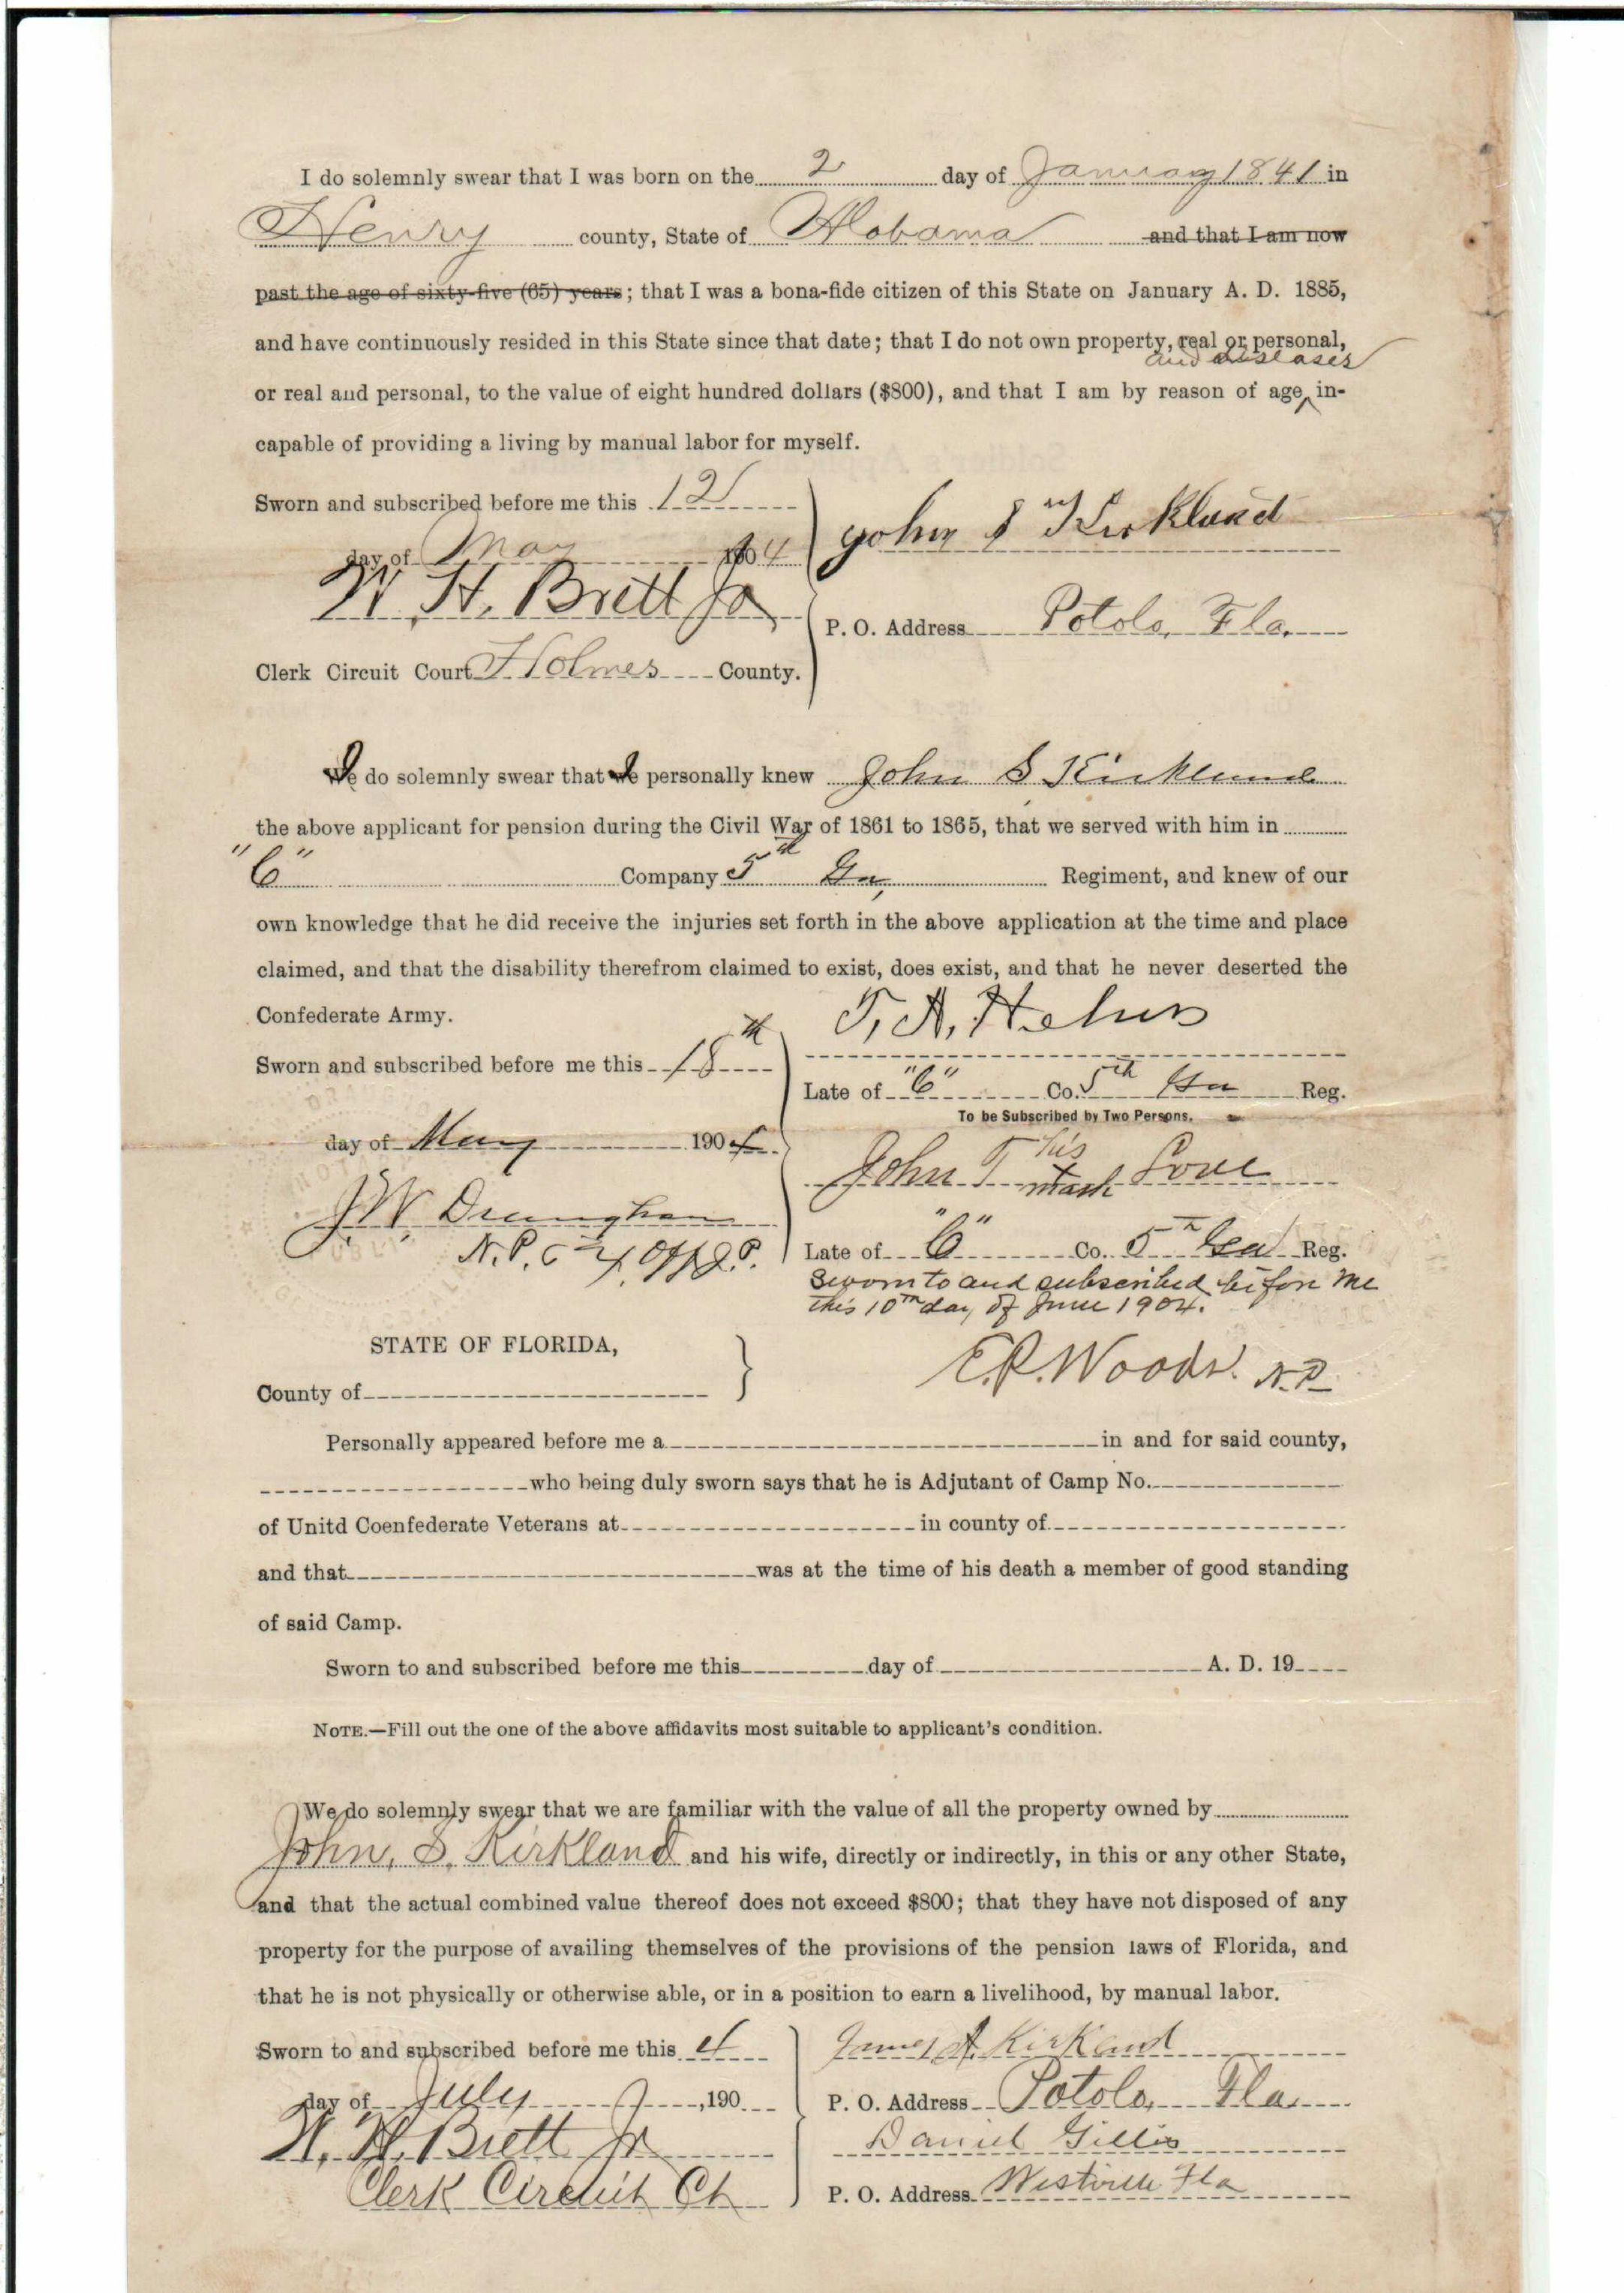 I do solemnly swear that I was born on the 2 day of January 1841 in
Henry county, State of Alabama and that I am now
past the age of sixty-five (65) years; that I was a bona-fide citizen of this State on January A. D. 1885,
and have continuously resided in this State since that date; that I do not own property, real or personal,
and diseases
or real and personal, to the value of eight hundred dollars ($800), and that I am by reason of age in-
capable of providing a living by manual labor for myself.
Sworn and subscribed before me this 12
John S Kirkland
day of May 1904
W. H. Brett Jr
P. O. Address Potolo, Fla.
Clerk Circuit Court Holmes County.
I do solemnly swear that I personally knew John S Kirkland
the above applicant for pension during the Civil War of 1861 to 1865, that we served with him in
"C" Company 5th Ga, Regiment, and knew of our
own knowledge that he did receive the injuries set forth in the above application at the time and place
claimed, and that the disability therefrom claimed to exist, does exist, and that he never deserted the
Confederate Army.
T. A. Helms
Sworn and subscribed before me this 18th
Late of "C" Co. 5th Ga Reg.
To be Subscribed by Two Persons.
day of May 1904
John T his mark Love
J. W.
N. P.
Late of "C" Co. 5th Ga Reg.
Sworn to and subscribed before me
this 10th day of June 1904.
STATE OF FLORIDA,
E. R. Woods. N. P.
County of
Personally appeared before me a in and for said county,
who being duly sworn says that he is Adjutant of Camp No.
of Unitd Coenfederate Veterans at in county of
and that was at the time of his death a member of good standing
of said Camp.
Sworn to and subscribed before me this day of A. D. 19
NOTE.—Fill out the one of the above affidavits most suitable to applicant's condition.
We do solemnly swear that we are familiar with the value of all the property owned by
John, S, Kirkland and his wife, directly or indirectly, in this or any other State,
and that the actual combined value thereof does not exceed $800; that they have not disposed of any
property for the purpose of availing themselves of the provisions of the pension laws of Florida, and
that he is not physically or otherwise able, or in a position to earn a livelihood, by manual labor.
Sworn to and subscribed before me this 4
James A. Kirkland
day of July ,190
P. O. Address Potolo, Fla.
W. H. Brett Jr
Daniel Gillis
Clerk Circuit Ct
P. O. Address Westville Fla